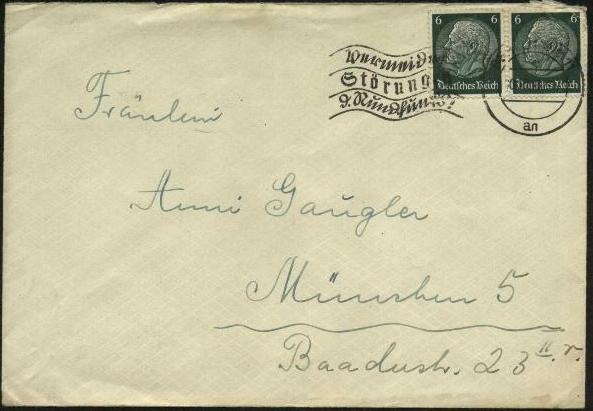 6 6 6 6
Deutsches Reich Deutsches Reich
Vermeidet
Störung
d. Rundfunks!
an
Fräulein
Anni Gaugler
München 5
Baaderstr. 23 II. r.